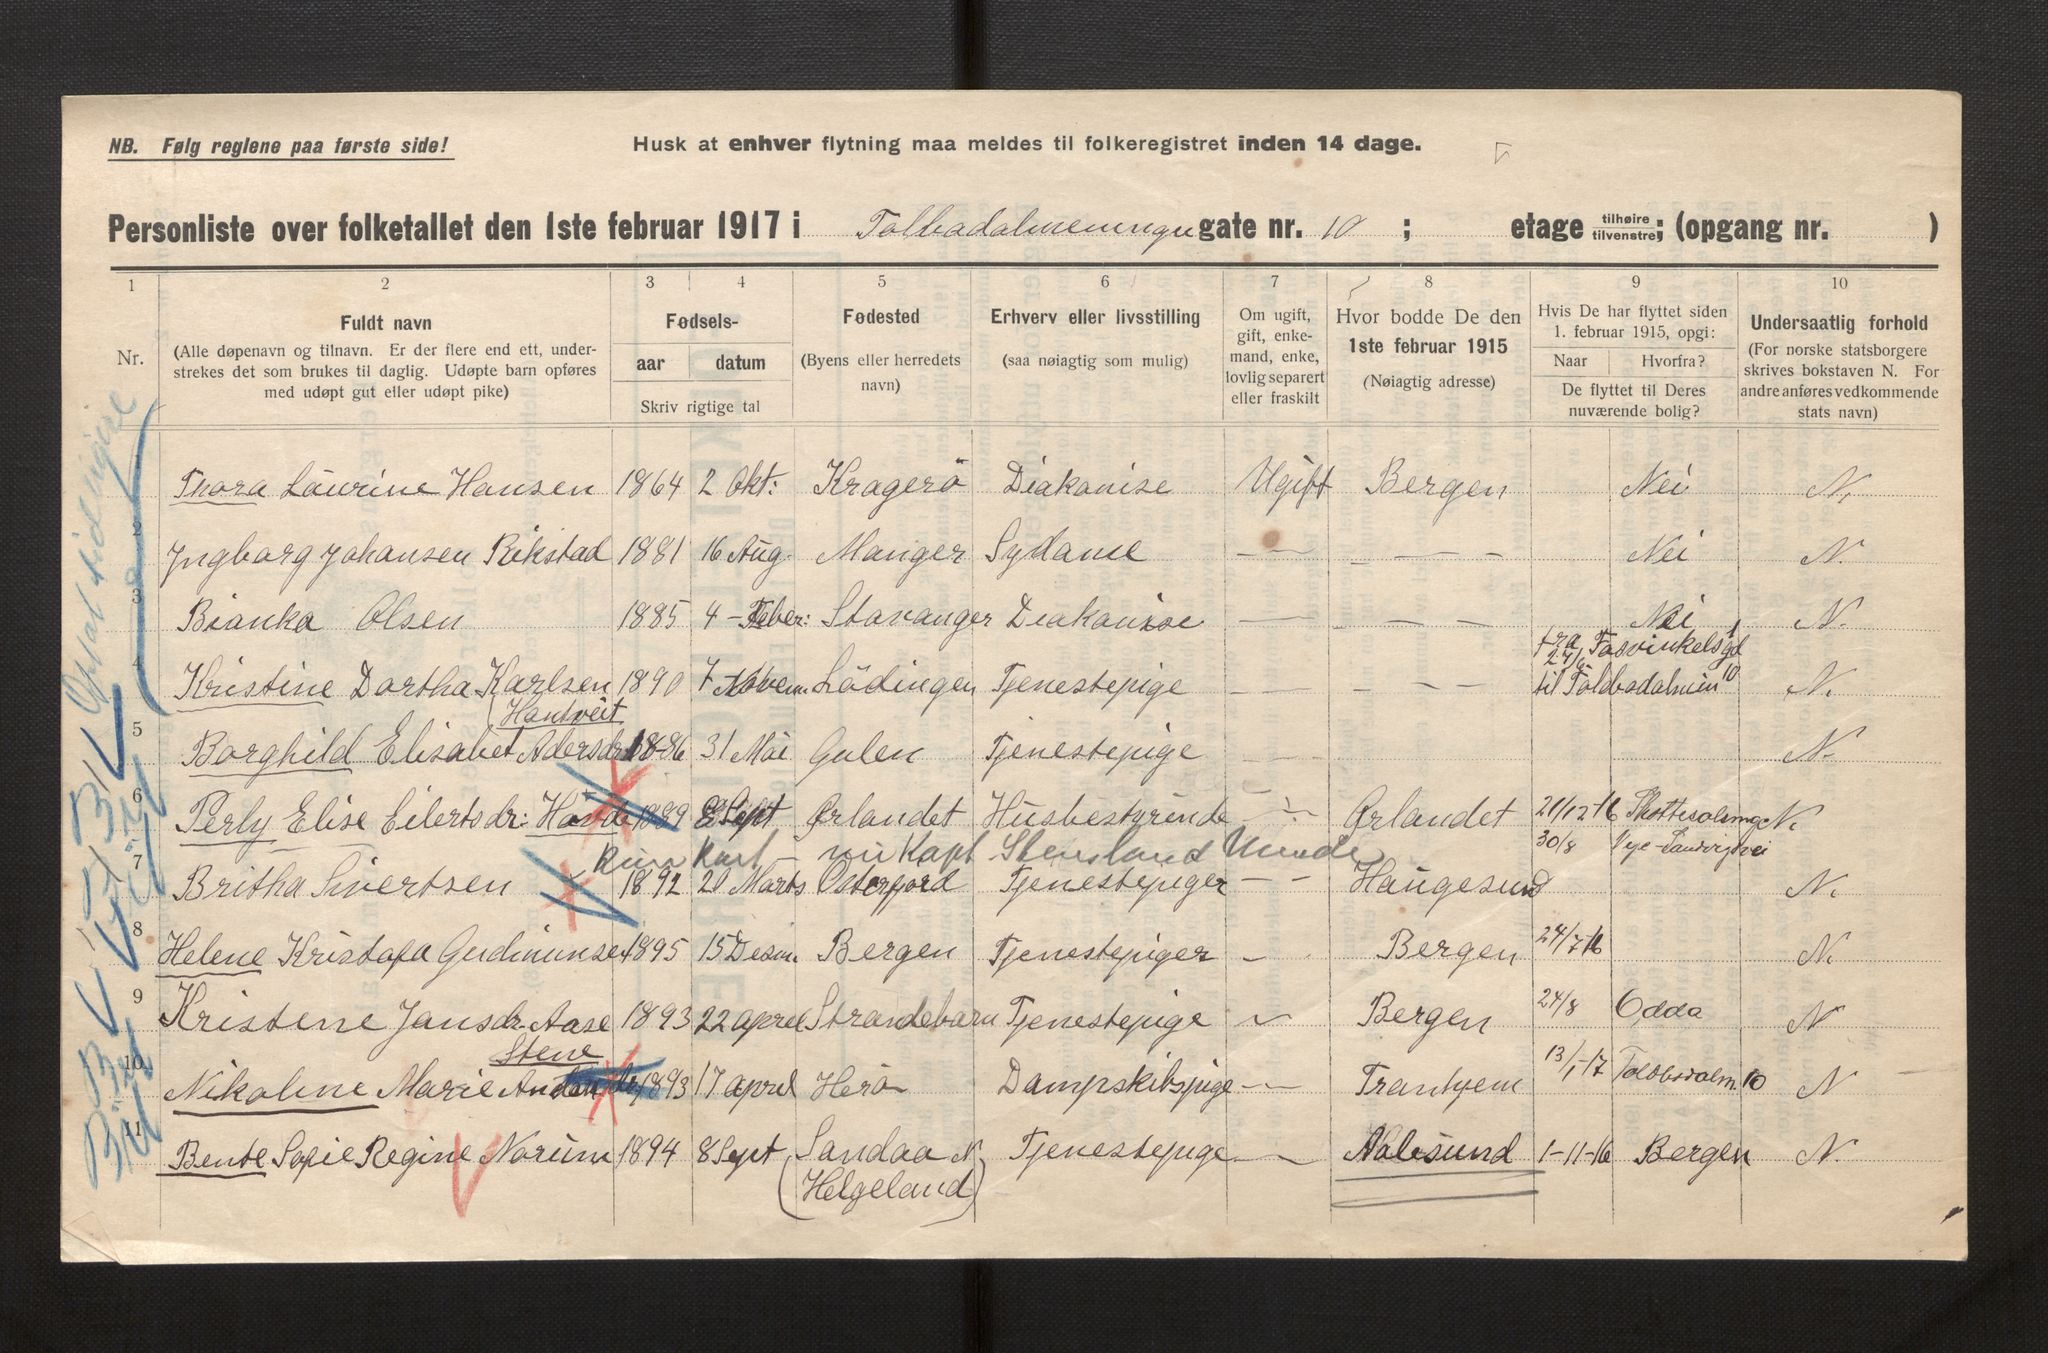 NB. Følg reglene paa første side!
Husk at enhver flytning maa meldes til folkeregistret inden 14 dage.
Personliste over folketallet den 1ste februar 1917 i Tolbodalmenningen gate nr. 10 ; etage tilhøire tilvenstre; (opgang nr. )
1 2 3 4 5 6 7 8 9 10
Nr.
Fuldt navn
(Alle døpenavn og tilnavn. Er der flere end ett, under-
strekes det som brukes til daglig. Udøpte barn opføres
med udøpt gut eller udøpt pike)
Fødsels-
aar datum
Skriv rigtige tal
Fødested
(Byens eller herredets
navn)
Erhverv eller livsstilling
(saa nøiagtig som mulig)
Om ugift,
gift, enke-
mand, enke,
lovlig separert
eller fraskilt
Hvor bodde De den
1ste februar 1915
(Nøiagtig adresse)
Hvis De har flyttet siden
1. februar 1915, opgi:
Naar Hvorfra?
De flyttet til Deres
nuværende bolig?
Undersaatlig forhold
(For norske statsborgere
skrives bokstaven N. For
andre anføres vedkommende
stats navn)
Thora Laurine Hansen 1864 2 Okt: Kragerö Diakonise Ugift Bergen Nei N.
2 Yngborg Johansen Rikstad 1881 16 Aug. Manger Sydame — — — — — Nei N.
3 Bianka Olsen 1885 4 Feber: Stavanger Diakonise — — — — — Nei N.
fra Tasvinkelsgd
27/6
4 Kristine Dortha Karlsen 1890 7 Novem. Lödingen Tjenestepige — — — — — til Toldbodalmin 10 N.
Hantveit
5 Borghild Elisabet Adersdr 1886 31 Mai Gulen Tjenestepige — — N.
6 Perly Elise Eilertsdr: 1889 Sept Ørlandet Husbestyrinde Ørlandet 21/12-16 N.
Kapt Stensland
30/8
7 Britha Sivertsen 1892 20 Marts Osterfjord Tjenestepiger — — Haugesund N.
8 Helene Kristofa Gudmunsen 1895 15 Desm. Bergen Tjenestepiger — Bergen 24/7-16 N.
9 Kristene Jansdr. Aase 1893 22 april Strandebarn Tjenestepige — Bergen 24/8 Odda N
Stene
10 Nikoline Marie 1893 17 april Herö Dampskibspige — Trontjem 13/1-17 Toldbodalm 10 N
11 Bente Sofie Regine Norum 1894 8 Sept Sandaa N. Tjenestepige — Aalesund 1-11-16 Bergen N.
(Helgeland)